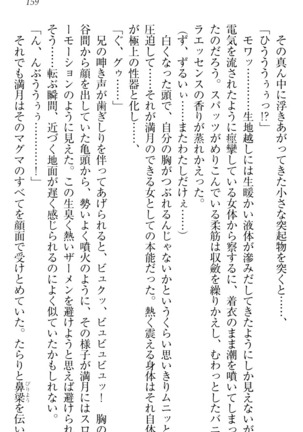 159
その真ん中に浮きあがってきた小さな突起物を突く。
「ひうううぅぅっ!?」
モワッ――――生地越しには生暖かい液体が滲みだしてきたようにしか見えないが、
電気を流されたように痙攣している女体から察するに、着衣のまま潮を噴いてしまっ
たのだろう。スパッツがめりこんでいる柔筋は収斂を繰り返し、むわっとしたバニ
ラエッセンスの香りが蒸れかえる。
(ず、ずるいい……またわたしだけぇ……)
白くなった頭で、自分の胸がつぶれるんじゃないかというくらい思いきりムニッと
圧迫して――それが満月のできる女としての本能だった。熱く震える身体はそれ自体
が極上の性器と化し――
「ぐ、グゥ……」
兄の呻き声が歯ぎしりを伴ってあげられると、ビュクッ、ビュビュビュ……
谷間から顔を出していた亀頭から、勢いよく噴火のように、その様子が満月にはスロ
ーモーションのように見えた。この生臭く熱いザーメンを避けようと思えば避けられ
そう……転ぶ瞬間、近づく地面が遅く感じられるのによく似ていたかもしれない。
それでも満月はそのマグマのすべてを顔面で受けとめていた。たらりと鼻梁を伝い
「ん、んぶううぅぅ……」